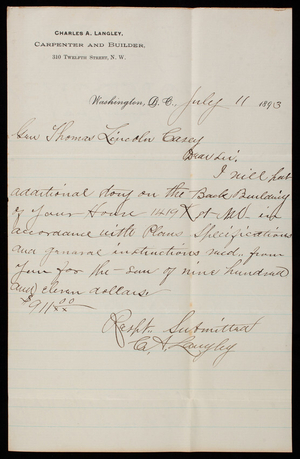 CHARLES A. LANGLEY,
CARPENTER AND BUILDER,
310 TWELFTH STREET, N. W.
Washington, D. C., July 11 1893
Gen Thomas Lincoln Casey
Dear Sir,
I will put
additional story on the Back Building
of your House 1419 K St. NW in
accordance with Plans Specifications
and general instructions recd. from
you for the sum of nine hundred
and eleven dollars
$911 00/xx
Respt. Submitted
C. A. Langley